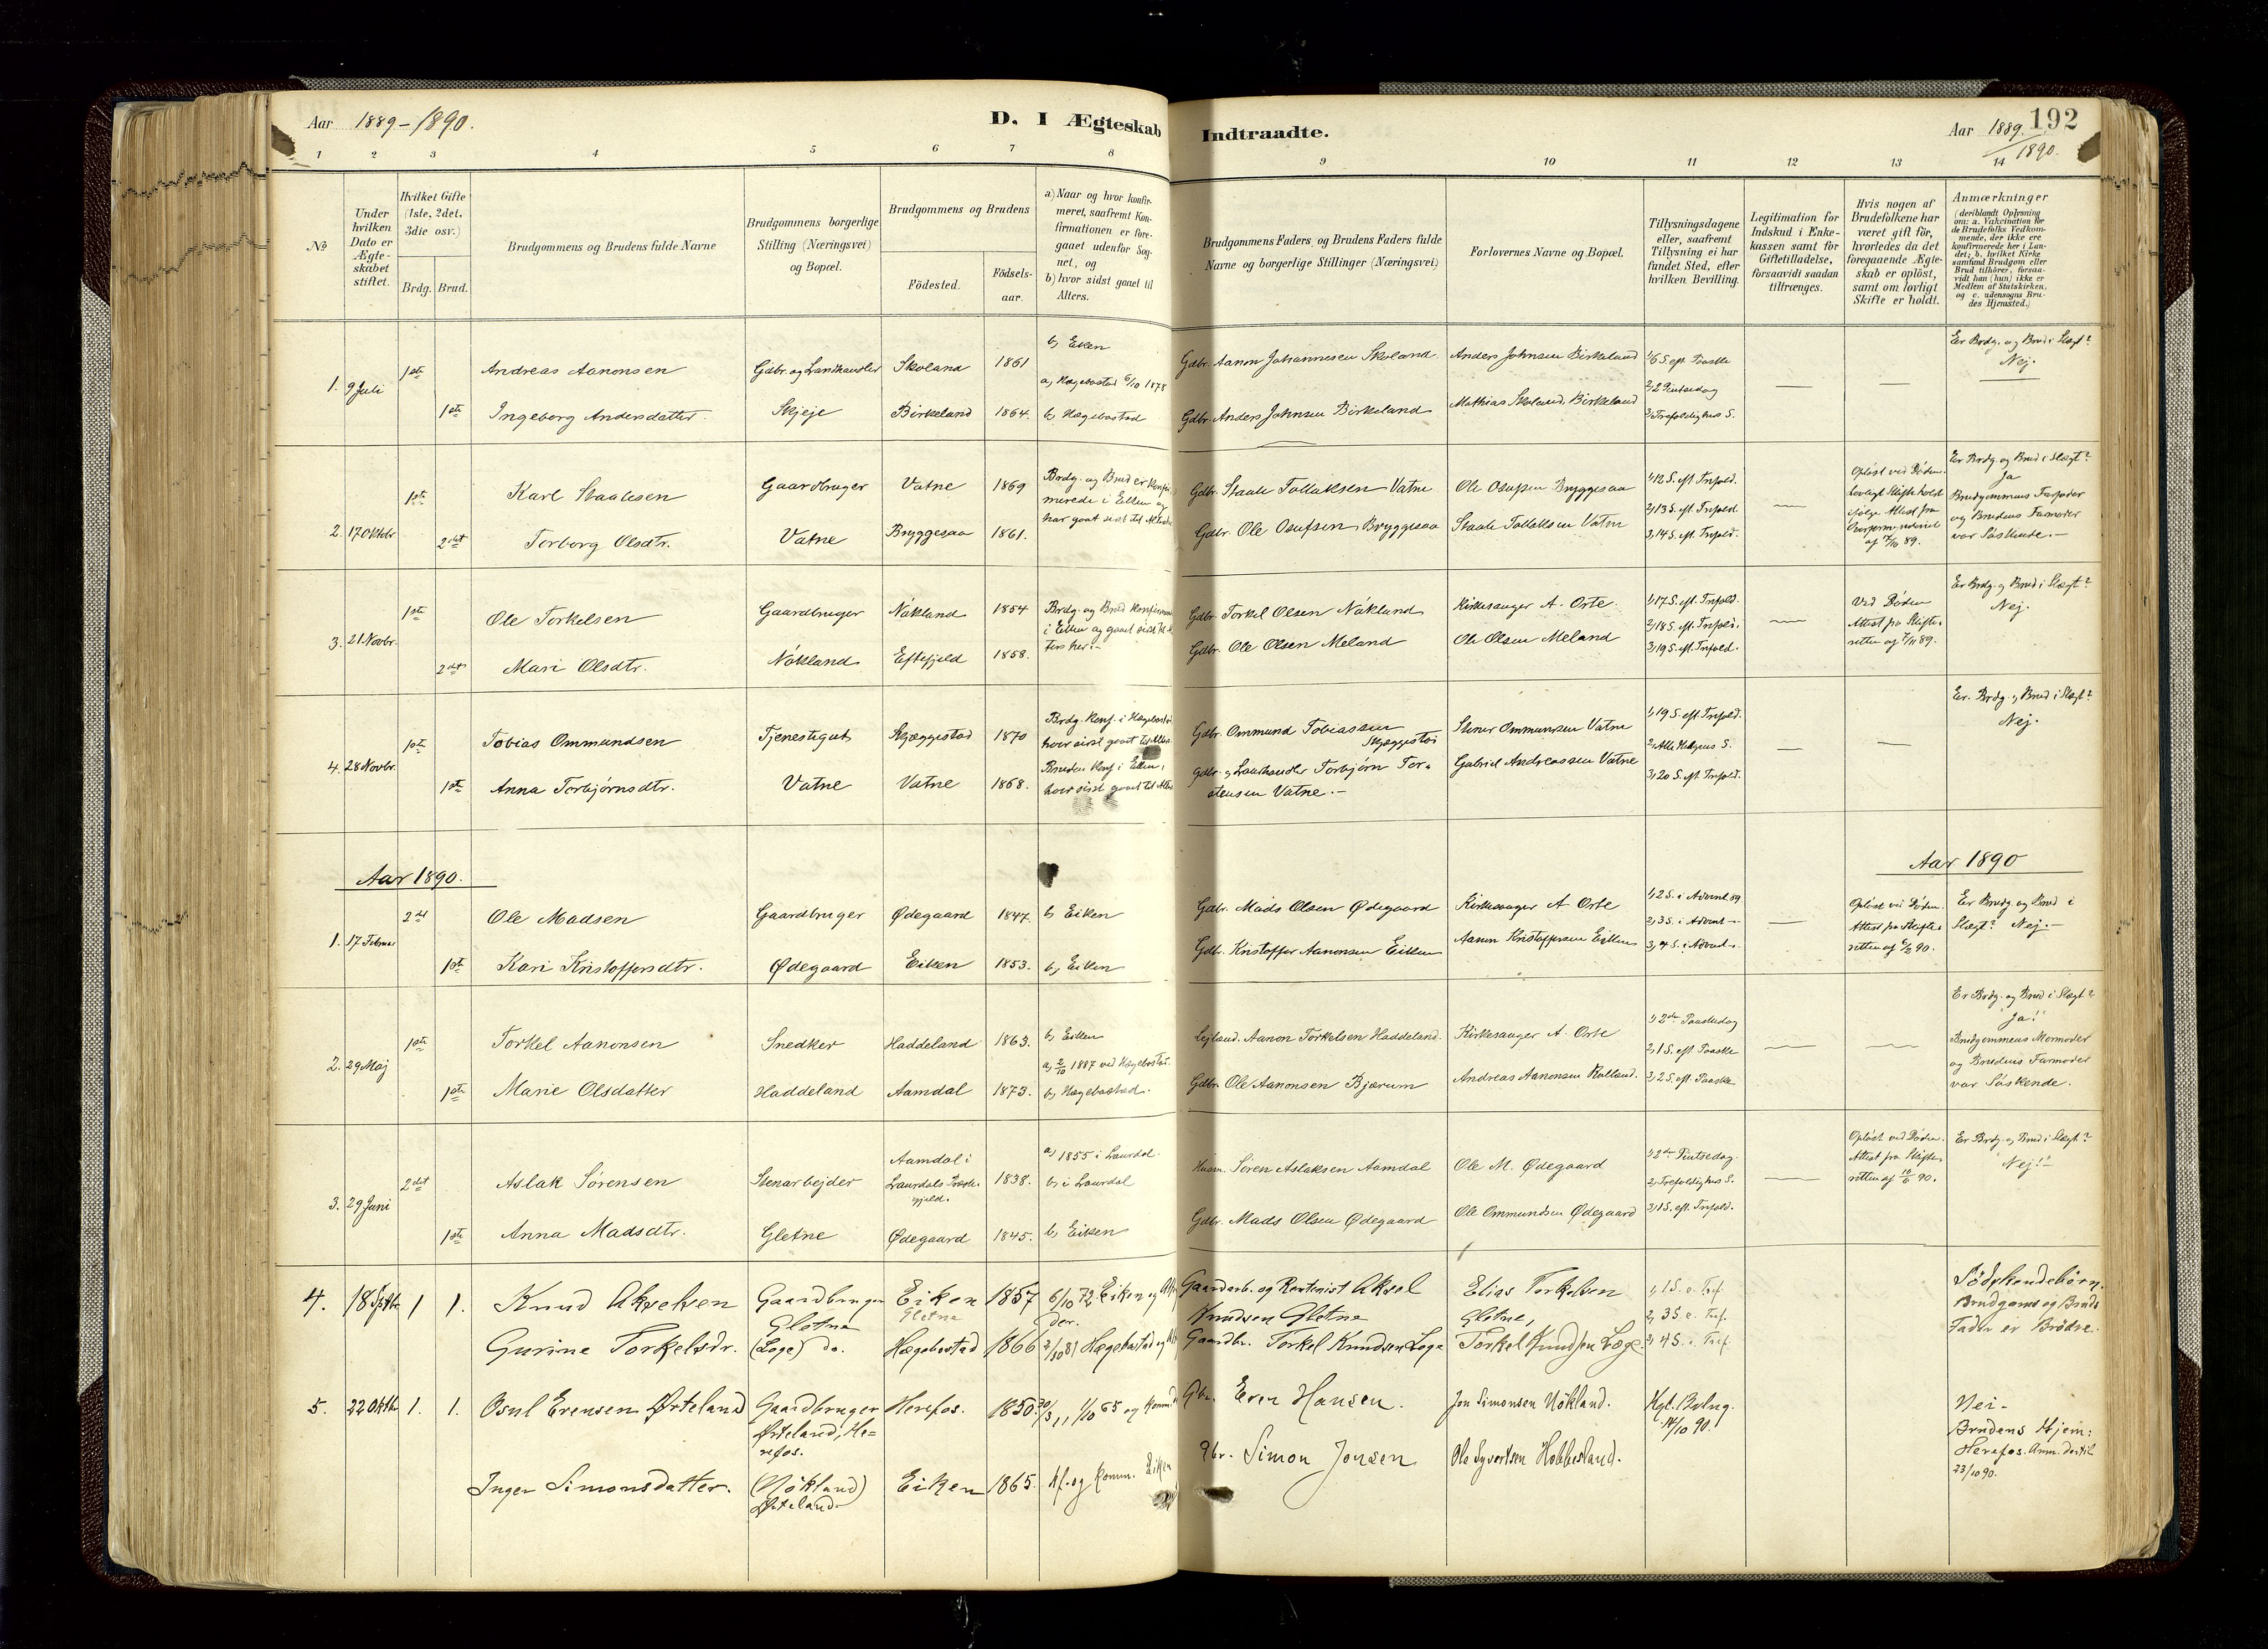 Aar 1889-1890.
D. I Ægteskab Indtraadte.
Aar 1889. 192
1890.
1 2 3 4 5 6 7 8 9 10 11 12 13 14
No
Under hvilken Dato er Ægte-skabet stiftet.
Hvilket Gifte (1ste, 2det, 3die osv.)
Brdg. Brud.
Brudgommens og Brudens fulde Navne
Brudgommens borgerlige Stilling (Næringsvei) og Bopæl.
Brudgommens og Brudens
Födested.
Födsels-aar.
a) Naar og hvor konfir-meret, saafremt Kon-firmationen er fore-gaaet udenfor Sog-net, og
b) hvor sidst gaaet til Alters.
Brudgommens Faders, og Brudens Faders fulde Navne og borgerlige Stillinger (Næringsvei)
Forlovernes Navne og Bopæl.
Tillysningsdagene eller, saafremt Tillysning ei har fundet Sted, efter hvilken Bevilling.
Legitimation for Indskud i Enke-kassen samt for Giftetilladelse, forsaavidt saadan tiltrænges.
Hvis nogen af Brudefolkene har været gift för, hvorledes da det foregaaende Ægte-skab er oplöst, samt om lovligt Skifte er holdt.
Anmærkninger
(deriblandt Oplysning om: a. Vakcination for de Brudefolks Vedkom-mende, der ikke ere konfirmerede her i Lan-det; b. hvilket Kirke samfund Brudgom eller Brud tilhörer, forsaa-vidt han (hun) ikke er Medlem af Statskirken, og c. udensogns Bru-des Hjemsted.)
1. 9 Juli 1ste Andreas Aanonsen Gdbr. og Landhandler Skoland 1861 b, Eiken Gdbr. Aanon Johannesen Skoland Anders Johnsen Birkeland 1, 6 S. eft. Paaske Er Brdg. og Brud i Slægt? Nej.
1ste Ingeborg Andersdatter. Skjeje Birkeland 1864. a, Hægebostad 6/10 1878 b, Hægebostad Gdbr. Anders Johnsen Birkeland Mathias Skoland, Birkeland 2, 2 Pintsedag 3, Trefoldighds S.
2. 17 Oktobr 1ste Karl Staalesen Gaardbruger Vatne 1869 Brdg. og Brud er konfir merede i Eiken og har gaat sidst til Alters Gdbr. Staale Tollaksen Vatne Ole Osufsen Bryggesaa 1, 12 S. eft. Trefold. Er Brdg. og Brud i Slægt? Ja
2det Torborg Olsdtr. Vatne Bryggesaa 1861. Gdbr. Ole Osufsen Bryggesaa Staale Tollaksen Vatne 2, 13 S. eft. Trefold 3, 14 S. eft. Trefold. Opløst ved Døden. Lovligt Skifte holdt ifølge Attest fra
Brudgommens Farfader og Brudens Farmoder var Söskende.-
3. 21 Novbr. 1ste Ole Torkelsen Gaardbruger Nökland 1854 Brdg. og Brud konfirm i Eiken og gaaet sidst til Al ters her.- Gdbr. Torkel Olsen Nökland Kirkesanger A. Orte. 1, 17 S. eft. Trefold. Ved Døden Attest fra Skifte-retten af 7/11 89. Er Brdg. og Brud i Slægt? Nej.
2det Mari Olsdtr. Nökland Eftefjeld 1858. Gdbr. Ole Olsen Meland Ole Olsen Meland 2, 18 S. eft. Trefold. 3, 19 S. eft. Trefold.
4. 28 Novbr. 1ste Tobias Ommundsen Tjenestegut Skjeggestad 1870 Brdg. konf. i Hægebostad hvor sidst gaaet til Alter Gdbr. Ommund Tobiassen Skjeggestad Stener Ommundsen Vatne 1, 19 S. eft. Trefold. Er. Brdg. og Brud i Slægt? Nej.
1ste Anna Torbjørnsdtr. Vatne Vatne 1868. Bruden konf. i Eiken, hvor sidst gaaet til Alter Gdbr. og Landhandler Torbjørn Tor-stensen Vatne.- Gabriel Andreassen Vatne 2, Alle Helgens S. 3, 20 S. eft. Trefold.
Aar 1890. Aar 1890
1. 17 Februar 2det Ole Madsen Gaardbruger Ødegaard 1847. b, Eiken Gdbr. Mads Olsen Ødegaard Kirkesanger A Orte 1, 2 S. i Advent 89 Opløst ved Døden. Attest fra Skifte-retten af 6/2 90. Er Brdg. og Brud i Slægt? Nej.-
1ste Kari Kristoffersdtr. Ødegaard Eiken 1853. b, Eiken Gdbr. Kristoffer Aanonsen Eiken Aanon Kristoffersen Eiken 2, 3 S. i Advent 3, 4 S. i Advent
2. 29 Maj 1ste Torkel Aanonsen Snedker Haddeland 1863. b, Eiken Lejland. Aanon Torkelsen Haddeland. Kirkesanger A. Orte 1, 2den Paaskedag Er Brdg. og Brud i Slægt? Ja!
1ste Marie Olsdatter Haddeland Aamdal 1873. a, 2/10 1887 ved Hægebostad. b, Hægebostad. Gdbr. Ole Aanonsen Bjærum Andreas Aanonsen Rolland. 2, 1 S. eft. Paaske 3, 2 S. eft. Paaske
Brudgommens Mormoder og Brudens Farmoder var Söskende.
3. 29 Juni 2det Aslak Sørensen Stenarbejder Aamdal i Laurdals Præste-gjeld. 1838. a) 1855 i Laurdal. b, i Laurdal Husm. Søren Aslaksen Aamdal Ole M. Ødegaard 1, 2den Pintsedag. Opløst ved Døden. Attest fra Skifte-retten af 10/6 90. Er Brdg. og Brud i Slægt? Nej!-
1ste Anna Madsdtr. Gletne Ødegaard 1845. b, Eiken Gdbr. Mads Olsen Ødegaard Ole Ommundsen Ødegaard 2, Trefoldighds S. 3, 1 S. eft. Trefold.
4. 18 Septbr 1 1. Knud Akselsen Gaardbruger Gletne Eiken Gletne 1857 6/10 72 Eiken og Gaardarb. og Rentenist Aksel Knudsen Gletne Elias Torkelsen Gletne, 1, 1 S. e. Tref. Södskendebörn. Brudgoms og Bruds Fader er Brödre.
Gurine Torkelsdr. (Loge) do. Hægebostad 1866 2/10 81 Hægebostad og Gaardbr. Torkel Knudsen Loge Torkel Knudsen Loge. 2, 3 S. e. Tref. 3, 4 S. e. Tref.
5. 22 Oktbr 1. 1. Osul Erensen Ørteland Gaardbruger Ørteland, He=refos. Herefos. 1850 1/10 65 og Komm. Gbr. Even Hansen. Jon Simonsen Nökland. Kgl. Bevlng. 14/10 90. Nei- Brudens Hjem: Herefos. Anm. dertil 23/10 90.
Inger Simonsdatter. (Nökland) Ørteland Eiken 1865. Kf. og Komm. Eiken Gbr. Simon Jonsen Ole Syvertsen Hobbesland.